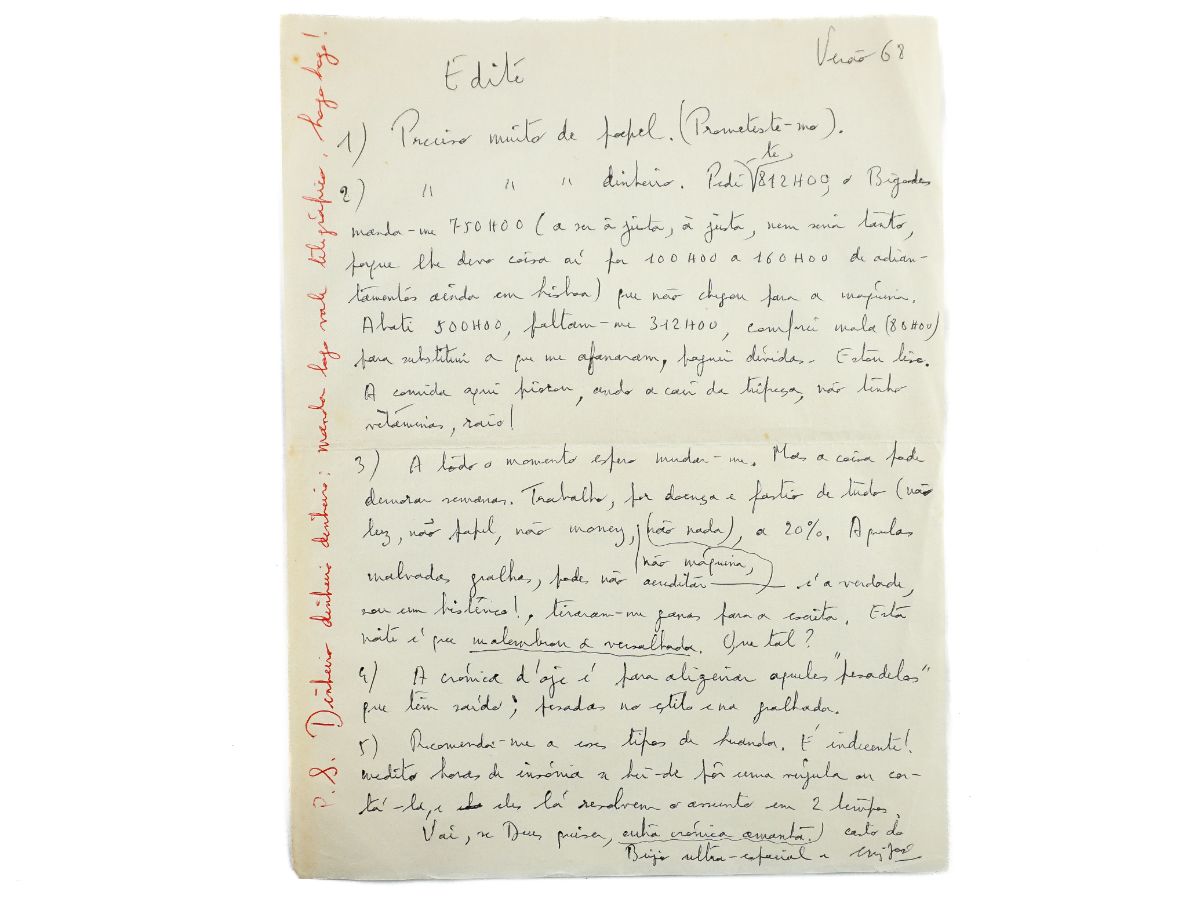 Verão 68
Edite
1) Preciso muito de papel. (Prometeste-mo).
2) " " " dinheiro. Pedi te 812H00, o Bigodes
manda-me 750H00 (a ser à justa, à justa, nem seria tanto,
porque lhe devo coisa aí por 100H00 a 160H00 de adian-
tamentos ainda em Lisboa) que não chegou para a máquina.
Abati 500H00, faltam-me 312H00, comprei mala (80H00)
para substituir a que me afanaram, paguei dívidas. Estou liso.
A comida aqui piorou, ando a cair da tripeça, não tenho
vitaminas, raio!
3) A todo o momento espero mudar-me. Mas a coisa pode
demorar semanas. Trabalho, por doença e fastio de tudo (não
luz, não papel, não money, não máquina, não nada), a 20%. Aquelas
malvadas gralhas, podes não acreditar é a verdade,
sou um histérico!, tiraram-me ganas para a escrita. Esta
noite é que
Que tal?
4) A crónica d'oje é para aligeirar aqueles "pesadelos"
que têm saído; pesadas no estilo e na gralhada.
5) Recomenda-me a esses tipos de É indecente!
medito horas de insónia se hei-de pôr uma vírgula ou cor-
tá-la, e eles lá resolvem o assunto em 2 tempos.
Vai, se Deus quiser, outra crónica amanhã.) casto do
Beijo ultra-especial e
P.S. Dinheiro dinheiro dinheiro: manda logo vale telegráfico, hogo hogo!